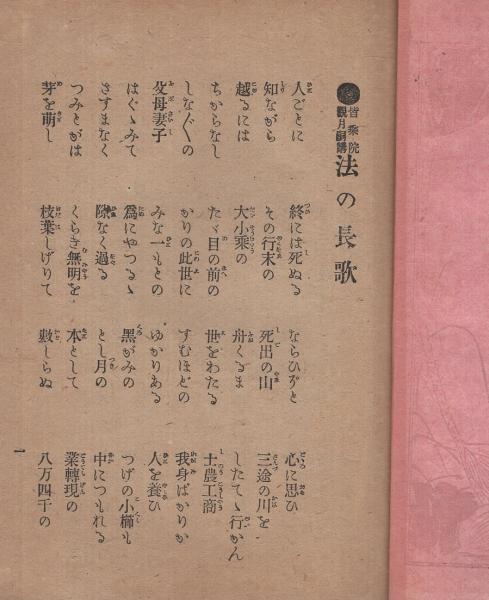 皆乘院
観月嗣講
法の長歌
人ごとに 終には死ぬる ならひぞと 心に思ひ
知ながら その行末の 死出の山 三途の川を
越るには 大小乘の 舟くるま したてゝ行かん
ちからなし たゞ目の前の 世をわたる 士農工商
しな〴〵の かりの此世に すむほどの 我身ばかりか
父母妻子 みな一もとの ゆかりある 人を養ひ
はぐゝみて 爲にやつるゝ 黑がみの つげの小櫛も
さすまなく 隙なく過る とし月の 中につもれる
つみとがは くらき無明を 本として 業轉現の
芽を萌し 枝葉しげりて 數しらぬ 八万四千の
一